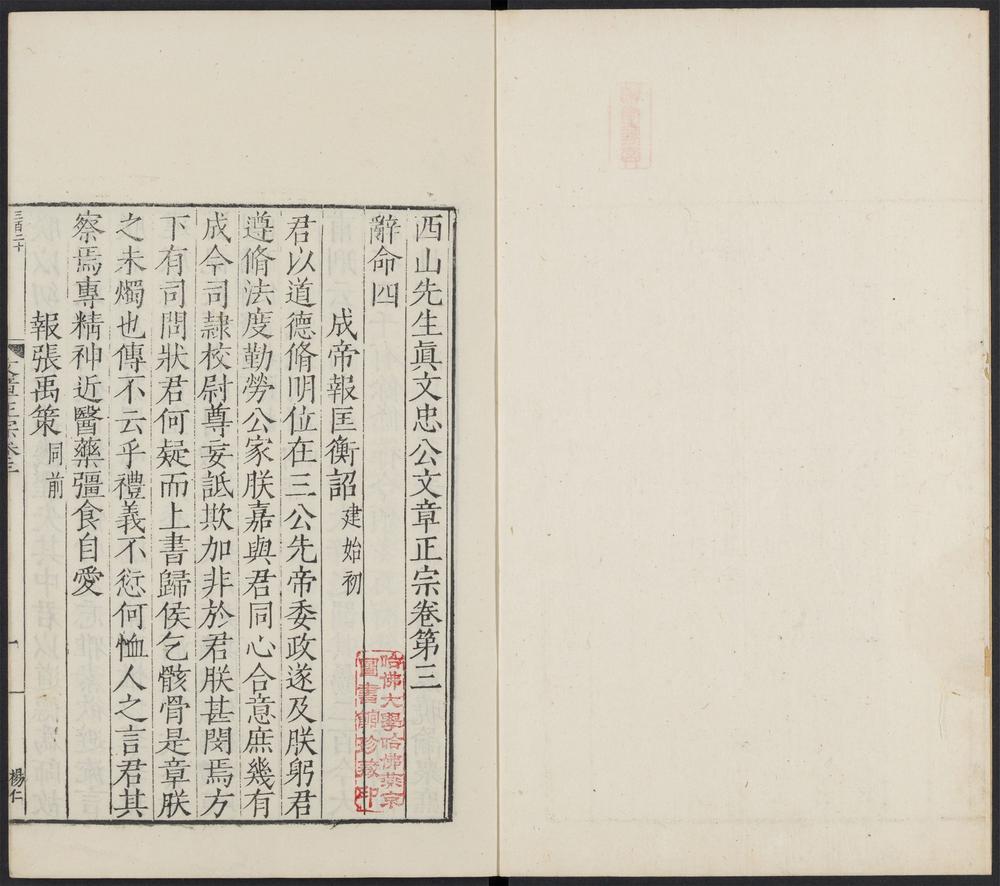 西山先生眞文忠公文章正宗卷第三
辭命四
成帝報匡衡詔建始初
君以道德脩明位在三公先帝委政遂及朕躬君
遵脩法度勤勞公家朕嘉與君同心合意庶幾有
成今司隷校尉尊妄詆欺加非於君朕甚閔焉方
下有司問狀君何疑而上書歸侯乞骸骨是章朕
之未燭也傳不云乎禮義不愆何恤人之言君其
察焉專精神近醫藥彊食自愛
報張禹策同前
三百二十
文章正宗卷三
一
楊仁
哈佛大學哈佛燕京
圖書館珍藏印